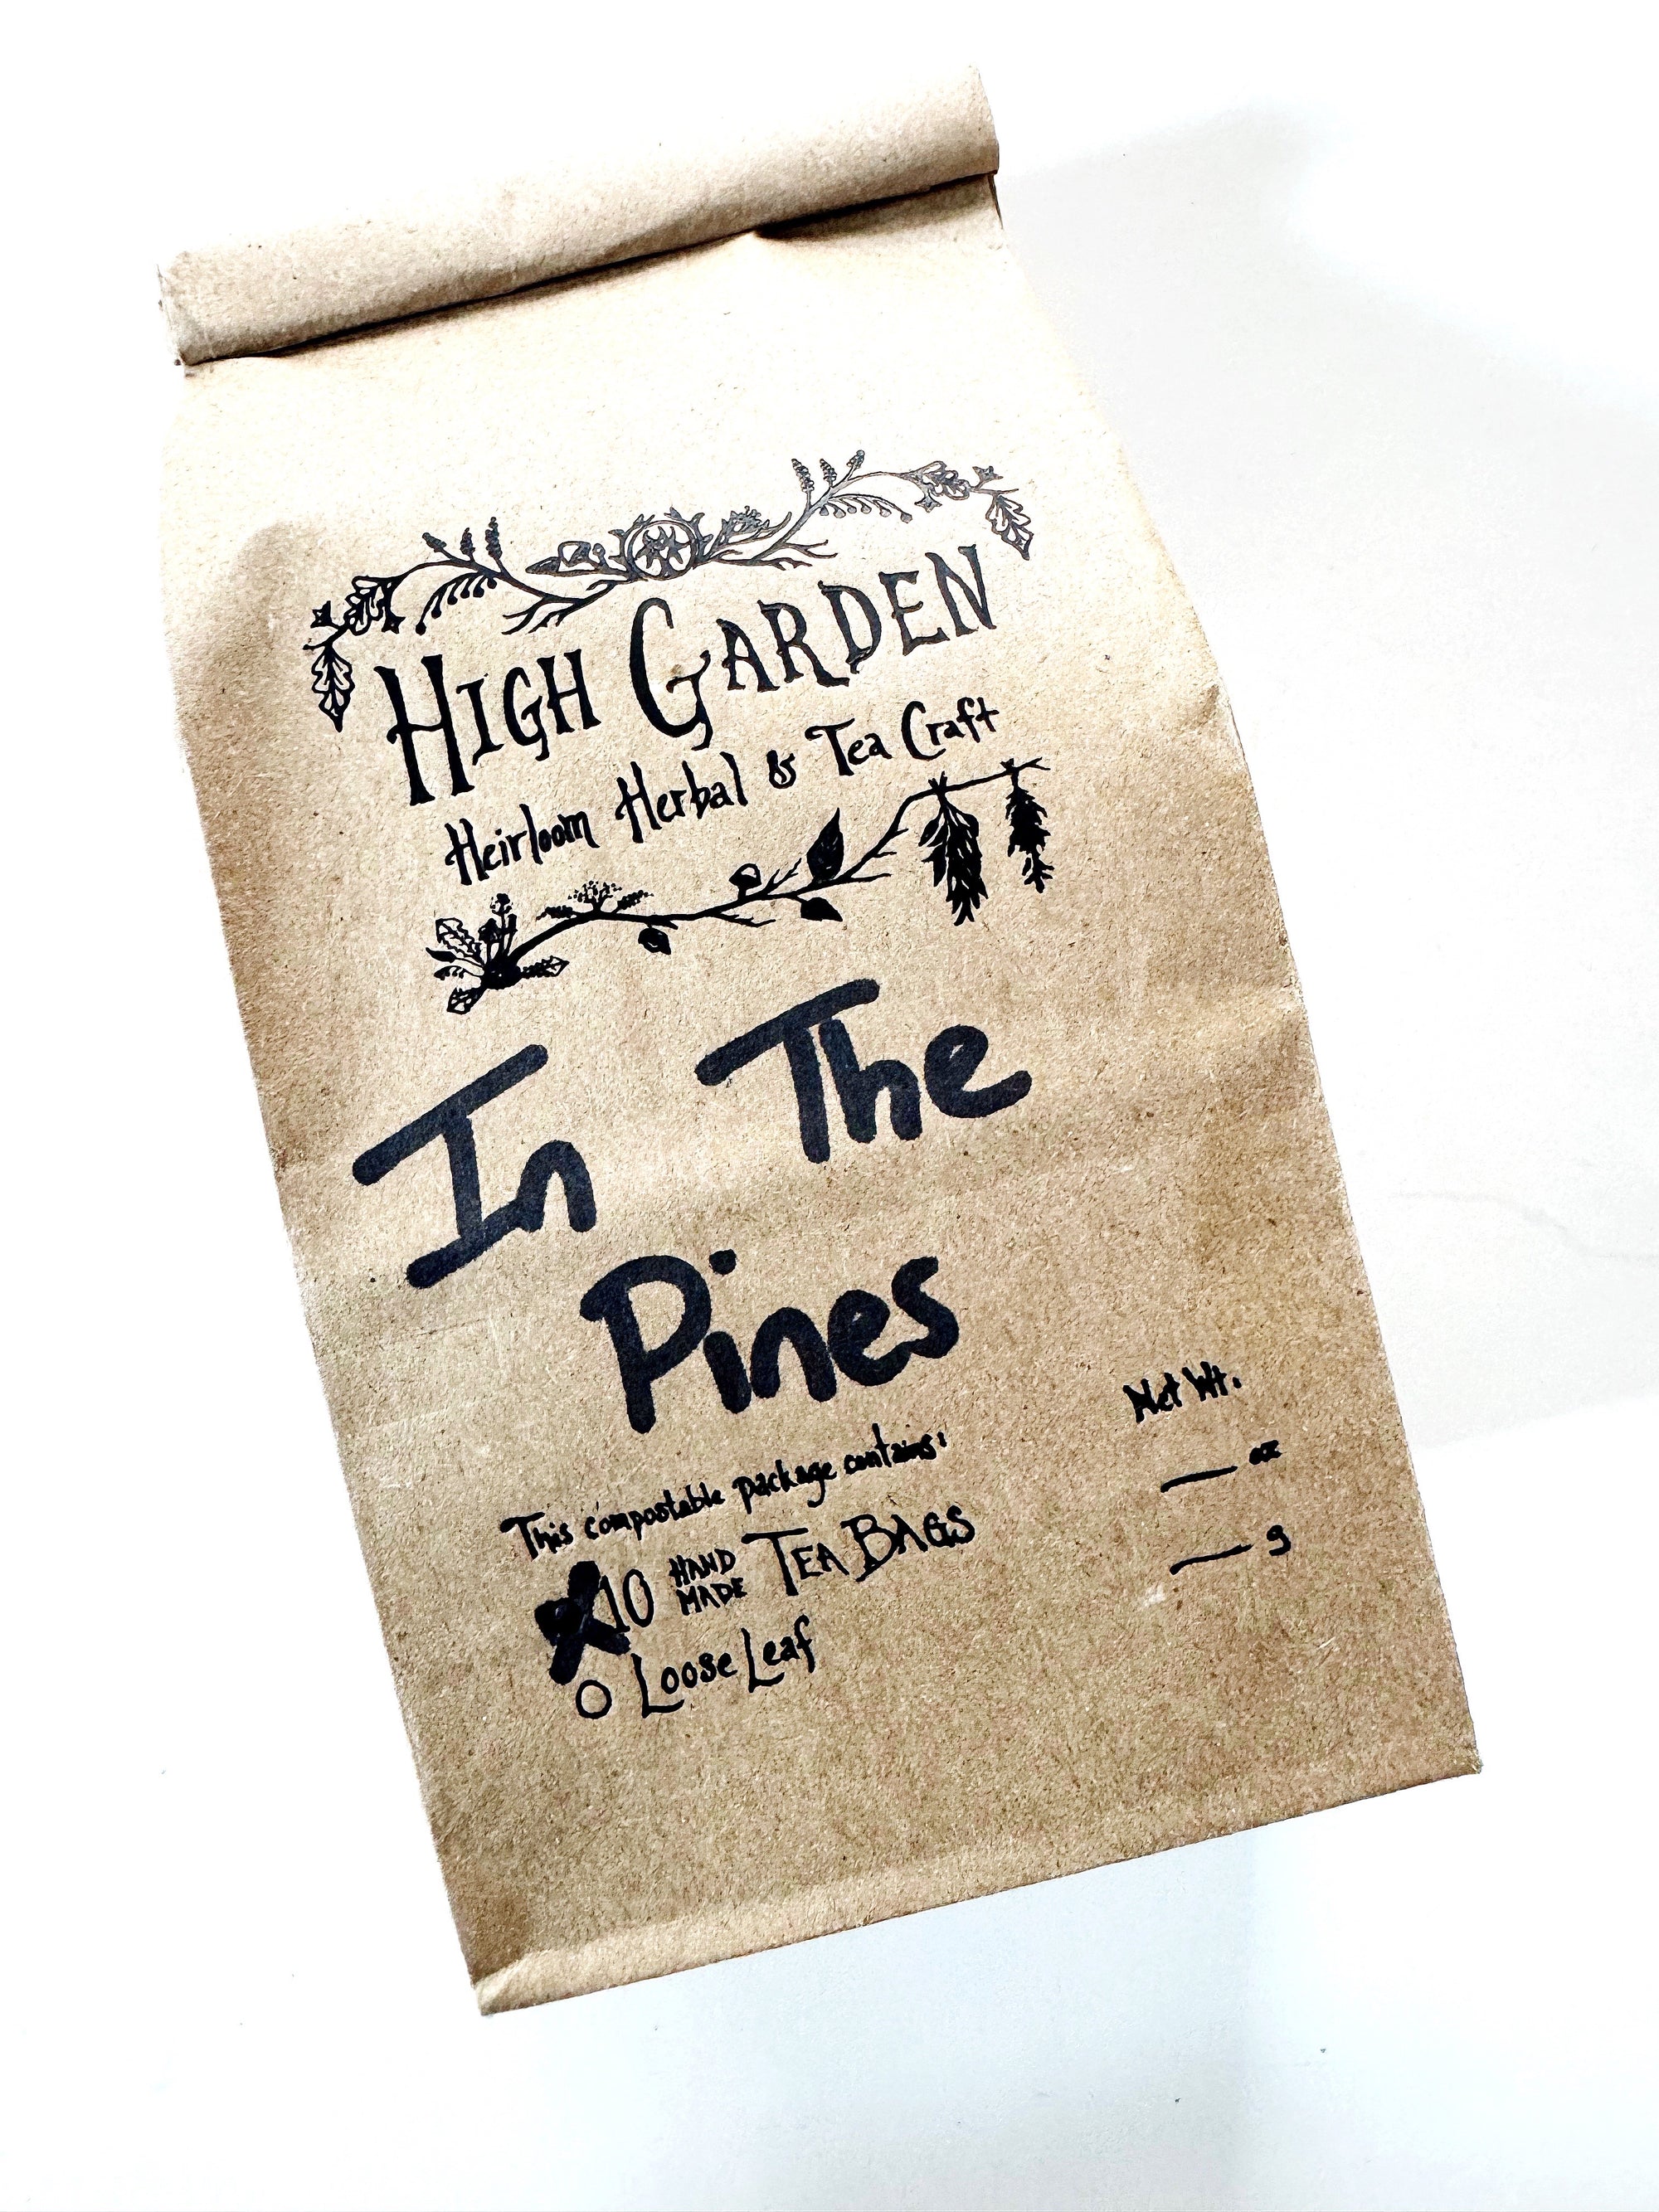 HIGH GARDEN
Heirloom Herbal & Tea Craft
In The
Pines
This compostable package contains:
10 HAND MADE TEA BAGS
O Loose Leaf
Net Wt:
___ oz
___ g